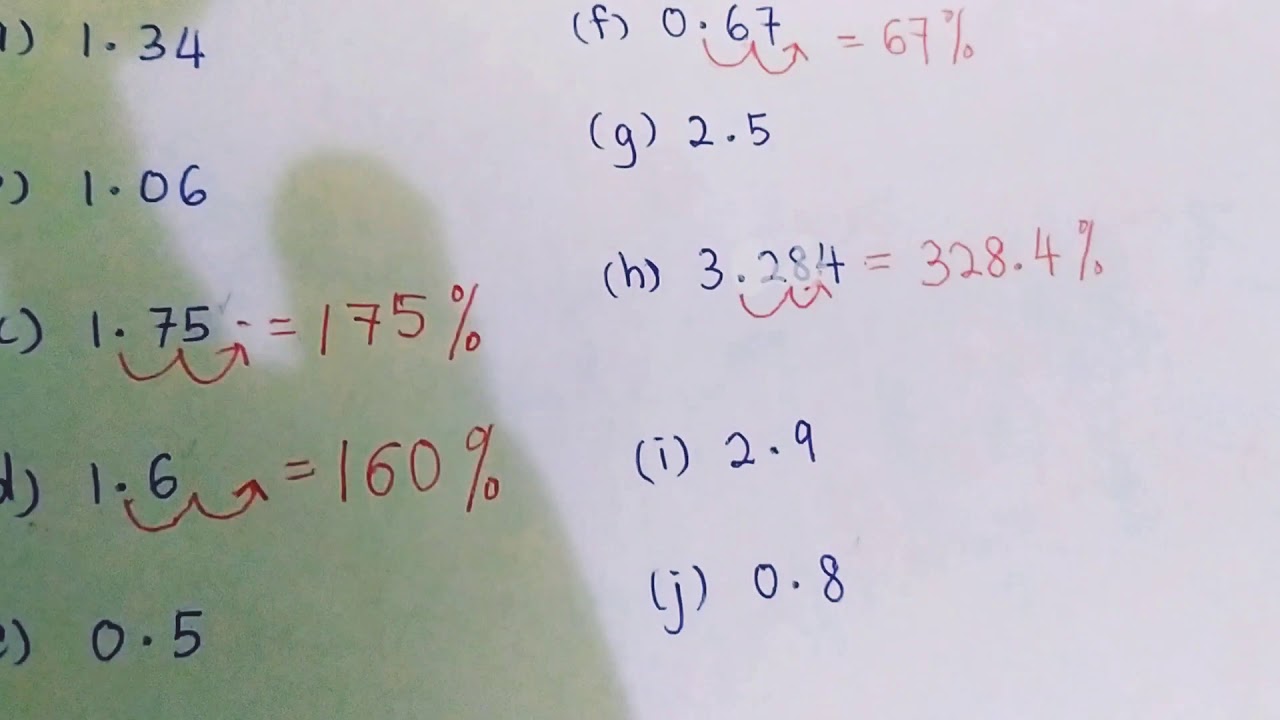 ) 1.34
) 1.06
c) 1.75 = 175%
d) 1.6 = 160%
) 0.5
(f) 0.67 = 67%
(g) 2.5
(h) 3.284 = 328.4%
(i) 2.9
(j) 0.8